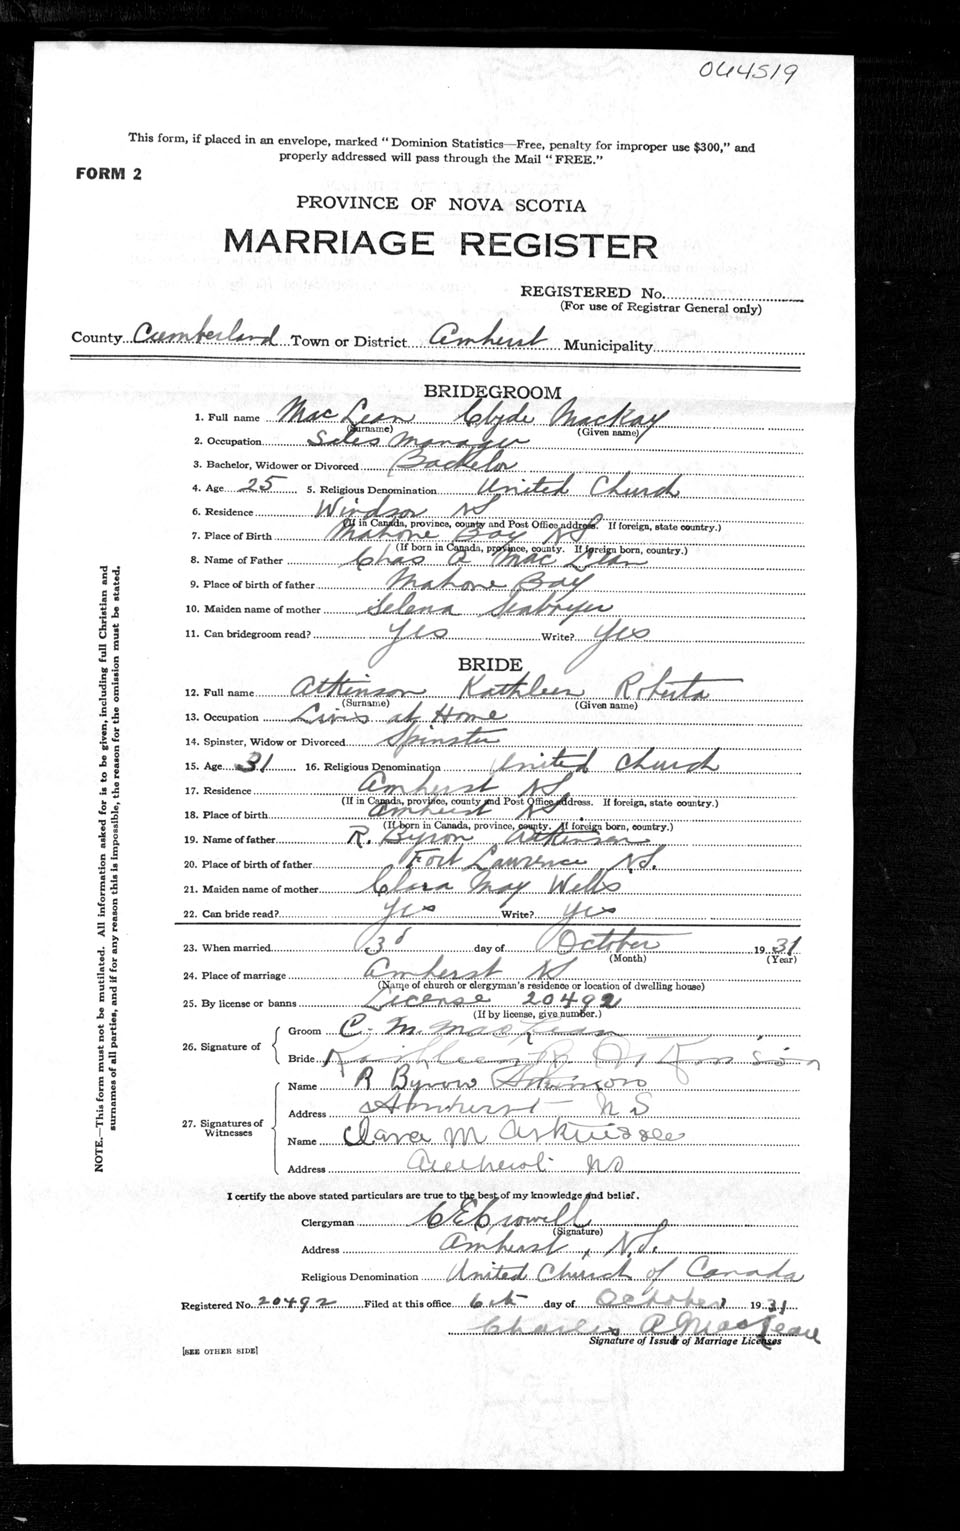 064519
This form, if placed in an envelope, marked "Dominion Statistics—Free, penalty for improper use $300," and
properly addressed will pass through the Mail "FREE."
FORM 2
PROVINCE OF NOVA SCOTIA
MARRIAGE REGISTER
REGISTERED No.
(For use of Registrar General only)
County Cumberland Town or District Amherst Municipality
BRIDEGROOM
1. Full name MacLean Clyde MacKay
(Surname) (Given name)
2. Occupation Sales Manager
3. Bachelor, Widower or Divorced Bachelor
4. Age 25 5. Religious Denomination United Church
6. Residence Windsor NS
(If in Canada, province, county and Post Office address. If foreign, state country.)
7. Place of Birth Mahone Bay NS
(If born in Canada, province, county. If foreign born, country.)
8. Name of Father Chas A MacLean
9. Place of birth of father Mahone Bay
10. Maiden name of mother Selena
11. Can bridegroom read? Yes Write? Yes
BRIDE
12. Full name Atkinson Kathleen Roberta
(Surname) (Given name)
13. Occupation Lives at Home
14. Spinster, Widow or Divorced Spinster
15. Age 31 16. Religious Denomination United Church
17. Residence Amherst NS
(If in Canada, province, county and Post Office address. If foreign, state country.)
18. Place of birth Amherst NS
(If born in Canada, province, county. If foreign born, country.)
19. Name of father R. Byron Atkinson
20. Place of birth of father Fort Lawrence NS.
21. Maiden name of mother Clara May Wells
22. Can bride read? Yes Write? Yes
23. When married 3d day of October 1931
(Month) (Year)
24. Place of marriage Amherst NS
(Name of church or clergyman's residence or location of dwelling house)
25. By license or banns License 20492
(If by license, give number.)
26. Signature of
Groom C. M. MacLean
Bride Kathleen R. Atkinson
27. Signatures of Witnesses
Name R Byron Atkinson
Address Amherst NS
Name Clara M Atkinson
Address Amherst NS
I certify the above stated particulars are true to the best of my knowledge and belief.
Clergyman C E Crowell
(Signature)
Address Amherst, N.S.
Religious Denomination United Church of Canada
Registered No. 20492 Filed at this office 6th day of October 1931
Charles A MacLean
Signature of Issuer of Marriage Licenses
[SEE OTHER SIDE]
NOTE.—This form must not be mutilated. All information asked for is to be given, including full Christian and
surnames of all parties, and if for any reason this is impossible, the reason for the omission must be stated.